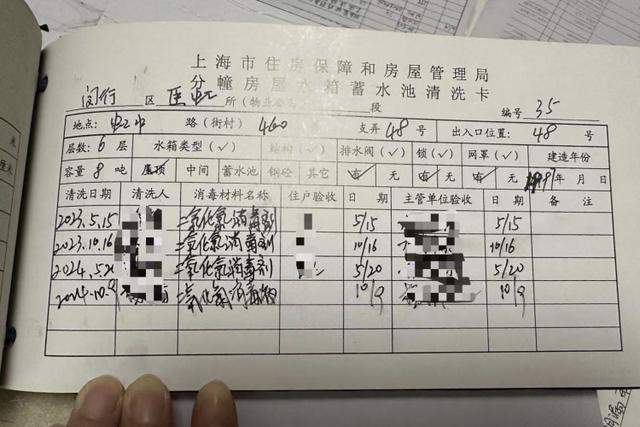 上海市住房保障和房屋管理局
分幢房屋水箱蓄水池清洗卡
闵行 区 所(物业 段 编号 35
地点: 虹中 路(街村) 460 支弄 48 号 出入口位置: 48 号
层数: 6 层 水箱类型(✓) 结构(✓) 排水阀(✓) 锁(✓) 网罩(✓) 建造年份
容量 8 吨 屋顶 中间 蓄水池 钢砼 其它 有 无 有 无 有 无 年 月 日
清洗日期 清洗人 消毒材料名称 住户验收 日期 主管单位验收 日期 备注
2023.5.15 二氧化氯消毒剂 5/15 5/15
2023.10.16 二氧化氯消毒剂 10/16 10/16
2024.5.21 二氧化氯消毒剂 5/20 5/20
2024.10.9 二氧氯消毒 10/9 10/9